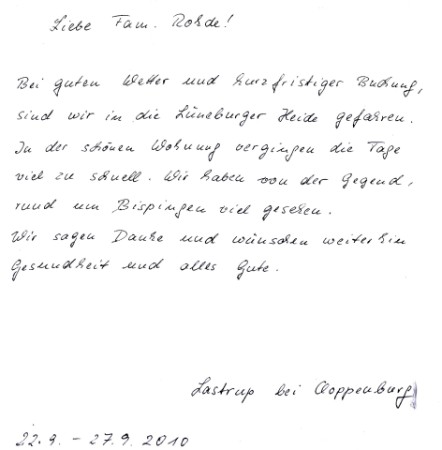 Liebe Fam. Rohde!
Bei guten Wetter und kurzfristiger Buchung,
sind wir in die Lüneburger Heide gefahren.
In der schönen Wohnung vergingen die Tage
viel zu schnell. Wir haben von der Gegend,
rund um Bispingen viel gesehen.
Wir sagen Danke und wünschen weiterhin
Gesundheit und alles Gute.
Lastrup bei Cloppenburg
22.9. - 27.9. 2010